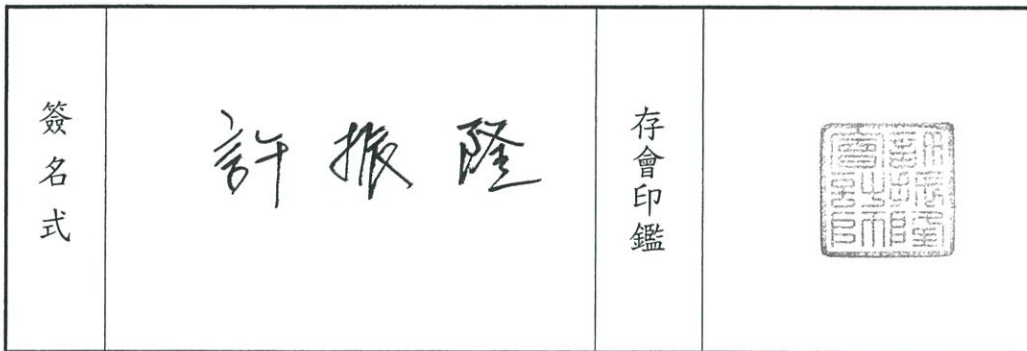 簽名式
許振隆
存會印鑑